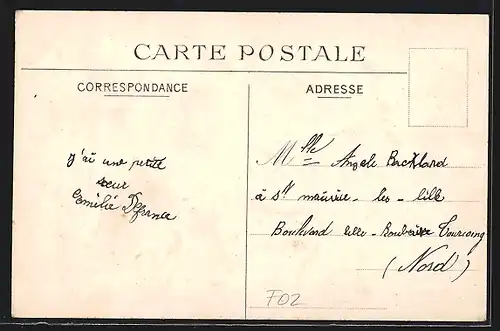 CARTE POSTALE
CORRESPONDANCE
ADRESSE
j'ai une petite
sœur
Emilie
Mlle Angele
à St maurice - les - lille
Boulevard lille - Roubaix Tourcoing
(Nord)
F02